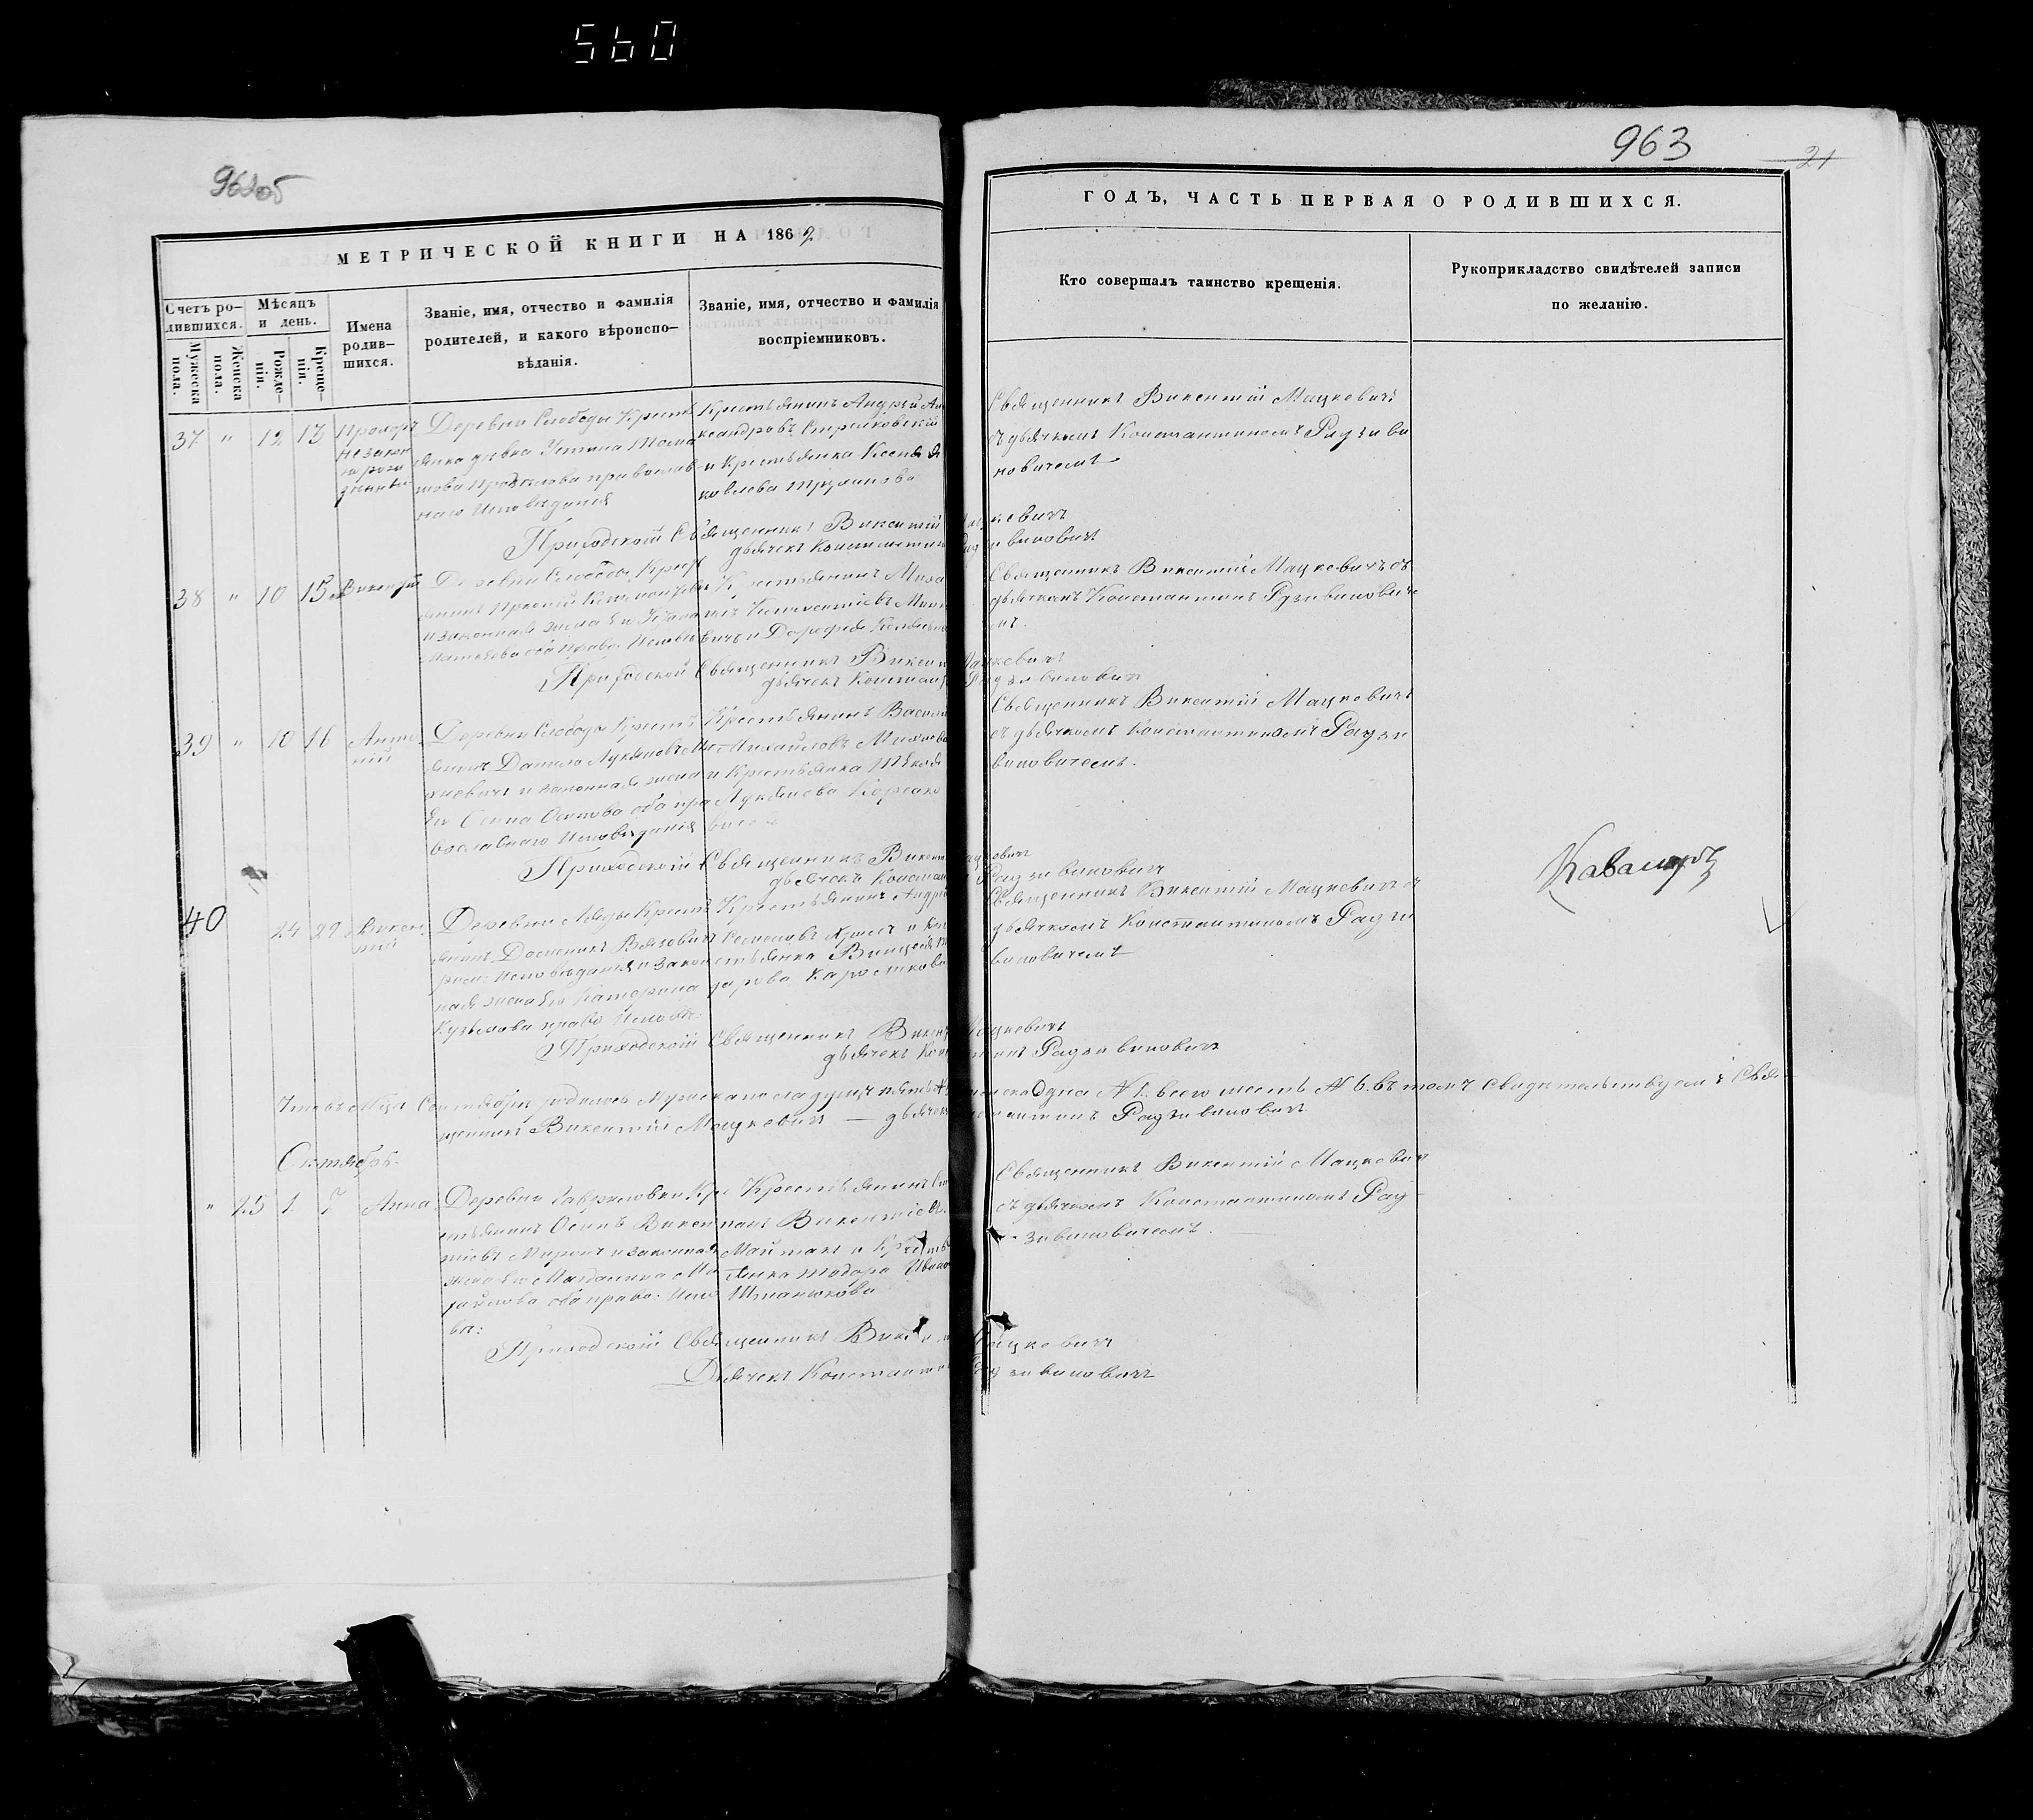 560
962об
963
21
МЕТРИЧЕСКОЙ КНИГИ НА 1862
ГОДЪ, ЧАСТЬ ПЕРВАЯ О РОДИВШИХСЯ.
Счетъ ро-
дившихся.
Мужеска
пола.
Женска
пола.
Мѣсяцъ
и день.
Рожде-
нія.
Креще-
нія.
Имена
родив-
шихся.
Званіе, имя, отчество и фамилія
родителей, и какого вѣроиспо-
вѣданія.
Званіе, имя, отчество и фамилія
воспріемниковъ.
Кто совершалъ таинство крещенія.
Рукоприкладство свидѣтелей записи
по желанію.
37 " 12 13 Прохоръ
незакон
Деревни Слободы Кресть
янка дѣвка Устина Фома
православ
наго Исповѣданія
Крестьянинъ Андрей Але
ксандровъ
и Крестьянка Ксенія Я
ковлева
Священникъ Викентій Мацкевичъ
съ дьячкомъ Константиномъ Радзиви
новичемъ
Приходской Священникъ Викентій Мацкевичъ
дьячекъ Константинъ Радзивиновичъ
38 " 10 15 Викентій
Деревни Слободы Крест
и законная жена его
Матвѣева оба право: Исповѣ
Крестьянинъ Миха
и Дорофея
Священникъ Викентій Мацкевичъ съ
дьячкомъ Константинъ Радзивинович
мъ.
Приходской Священникъ Викентій Мацкевичъ
дьячекъ Константинъ Радзивиновичъ
39 " 10 16 Анто-
ній
Деревни Слободы Кресть
янинъ Данило Лукяновъ Ми-
хневичъ и законная жена
его Осипова оба пра
вославнаго Исповѣданія
Крестьянинъ Васили
Михайловъ Михнево
и Крестьянка Тѣкля
Лукянова
Священникъ Викентій Мацкевичъ
съ дьячкомъ Константиномъ Радзи
виновичемъ.
Приходской Священникъ Викентій Мацкевичъ
дьячекъ Константинъ Радзивиновичъ
40 24 29 Викен-
тій
Деревни Ляды Кресть
янинъ Доминикъ
рим: Исповѣданія и закон
ная жена его Катерина
Кузьмова право Исповѣ:
Крестьянинъ Андрей
Семеновъ
Священникъ Викентій Мацкевичъ съ
дьячкомъ Константиномъ Радзи
виновичемъ
Кавалеръ
Приходской Священникъ Викентій Мацкевичъ
дьячекъ Константинъ Радзивиновичъ
Что въ Мцѣ Сентябрѣ родилось Мужеска пола душъ пять женска Одна N 1. всего шесть N 6. въ томъ свидѣтельствуемъ Свя-
щенникъ Викентій Мацкевичъ — дьячекъ Константинъ Радзивиновичъ
Октябрь.
" 25 1 7 Анна
Деревни Гавриловки Кре
стьянинъ Осипъ Викен
тіевъ Миронъ и законная
жена его Магдалина Ми
хайлова оба право: Испо
вѣ:
Крестьянинъ
Викентіевъ
и Кресть
янка Тодора Ивано
Священникъ Викентій Мацкевичъ
съ дьячкомъ Константиномъ Рад-
зивиновичемъ.
Приходской Священникъ Викентій Мацкевичъ
Дьячекъ Константинъ Радзивиновичъ